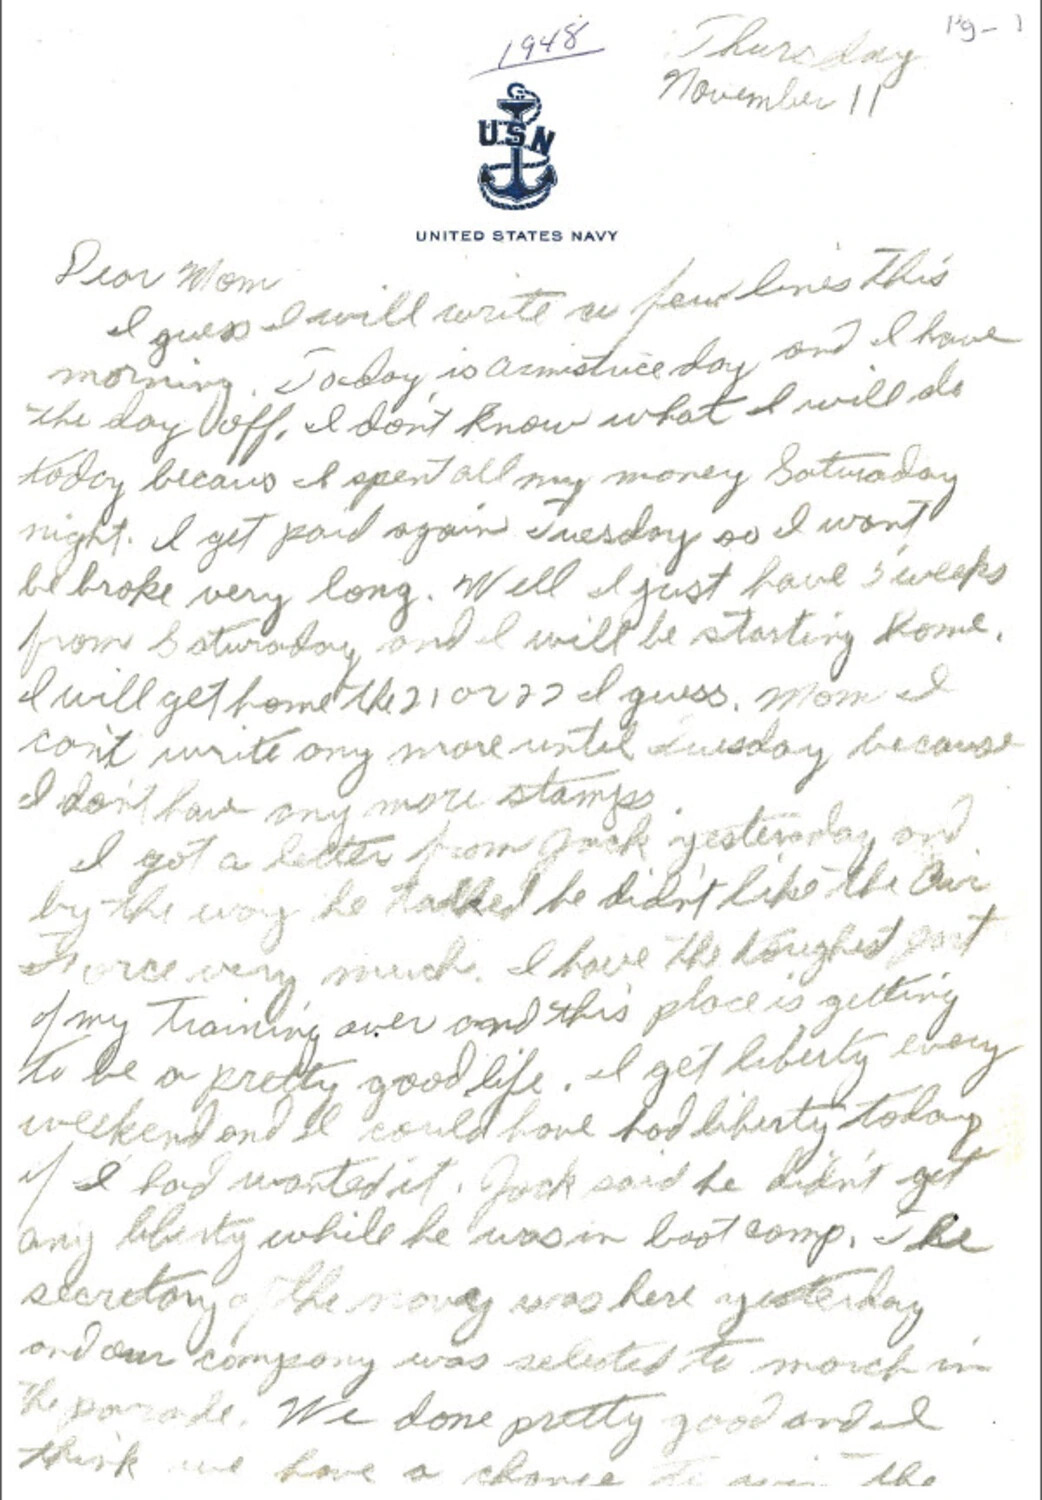 Pg-1
1948
Thursday
November 11
USN
UNITED STATES NAVY
Dear Mom
I guess I will write a few lines this
morning. Today is armistice day and I have
the day off. I don't know what I will do
today becaus I spent all my money Saturday
night. I get paid again Tuesday so I wont
be broke very long. Well I just have 5 weeks
from Saturday and I will be starting home.
I will get home the 21 or 22 I guess. Mom I
can't write any more until Tuesday because
I don't have any more stamps.
I got a letter from Jack yesterday and
by the way he talked he didn't like the Air
Force very much. I have the toughest part
of my training over and this place is getting
to be a pretty good life. I get liberty every
weekend and I could have had liberty today
if I had wanted it. Jack said he didn't get
any liberty while he was in boot camp. The
secretary of the navy was here yesterday
and our company was selected to march in
the parade. We done pretty good and I
think we have a chance to win the